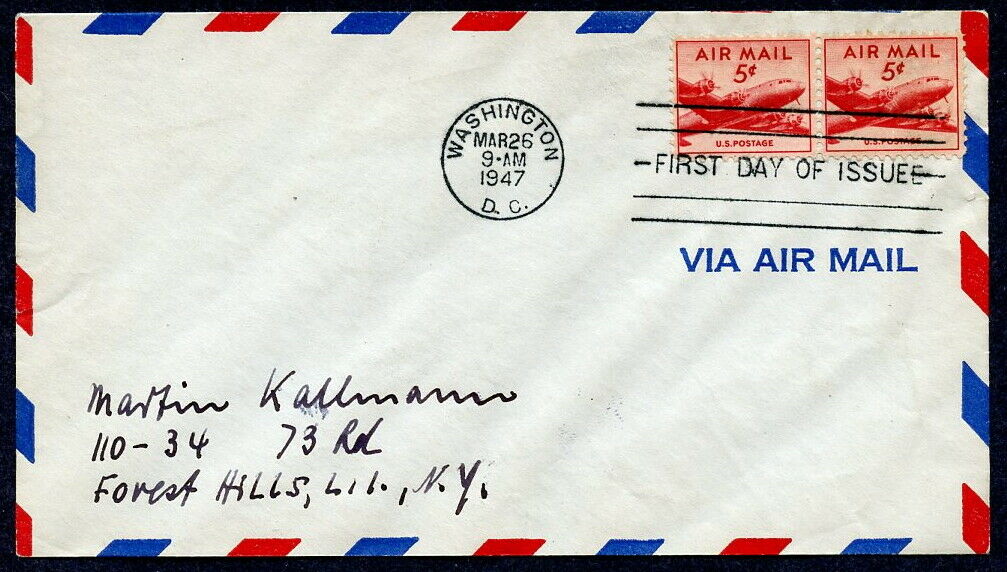 AIR MAIL
5¢
U.S. POSTAGE
AIR MAIL
5¢
U.S. POSTAGE
WASHINGTON
MAR 26
9-AM
1947
D. C.
FIRST DAY OF ISSUE
VIA AIR MAIL
Martin Kallmann
110-34 73 Rd
Forest Hills, L.I., N.Y.